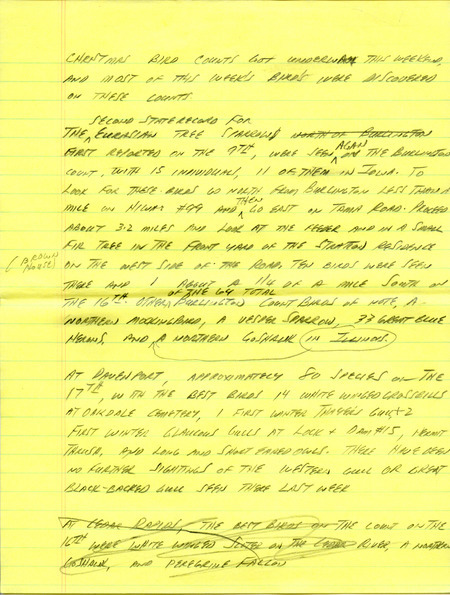 CHRISTMAS BIRD COUNTS GOT UNDERWAY THIS WEEKEND,
AND MOST OF THIS WEEK'S BIRDS WERE DISCOVERED
ON THESE COUNTS.
SECOND STATE RECORD FOR
THE EURASIAN TREE SPARROWS NORTH OF BURLINGTON
AGAIN
FIRST REPORTED ON THE 9TH, WERE SEEN ON THE BURLINGTON
COUNT, WITH 15 INDIVIDUALS, 11 OF THEM IN IOWA. TO
LOOK FOR THESE BIRDS GO NORTH FROM BURLINGTON LESS THAN A
THEN
MILE ON HIWAY #99 AND GO EAST ON TAMA ROAD. PROCEED
ABOUT 3.2 MILES AND LOOK AT THE FEEDER AND IN A SMALL
FIR TREE IN THE FRONT YARD OF THE STRATTON RESIDENCE
(BROWN HOUSE)
ON THE WEST SIDE OF THE ROAD. TEN BIRDS WERE SEEN
THERE AND 1 ABOUT A 1/4 OF A MILE SOUTH ON
OF THE 64 TOTAL
THE 16TH. OTHER BURLINGTON COUNT BIRDS OF NOTE, A
NORTHERN MOCKINGBIRD, A VESPER SPARROW, 33 GREAT BLUE
HERONS, AND A NORTHERN GOSHAWK IN ILLINOIS.
AT DAVENPORT, APPROXIMATELY 80 SPECIES ON THE
17TH, WITH THE BEST BIRDS 14 WHITE WINGED CROSSBILLS
AT OAKDALE CEMETERY, 1 FIRST WINTER THAYER'S GULL & 2
FIRST WINTER GLAUCOUS GULLS AT LOCK & DAM #15, HERMIT
THRUSH, AND LONG AND SHORT EARED OWLS. THERE HAVE BEEN
NO FURTHER SIGHTINGS OF THE WESTERN GULL OR GREAT
BLACK-BACKED GULL SEEN THERE LAST WEEK
AT CEDAR RAPIDS, THE BEST BIRDS ON THE COUNT ON THE
16TH WERE WHITE WINGED SCOTER ON THE CEDAR RIVER, A NORTHERN
GOSHAWK, AND PEREGRINE FALCON